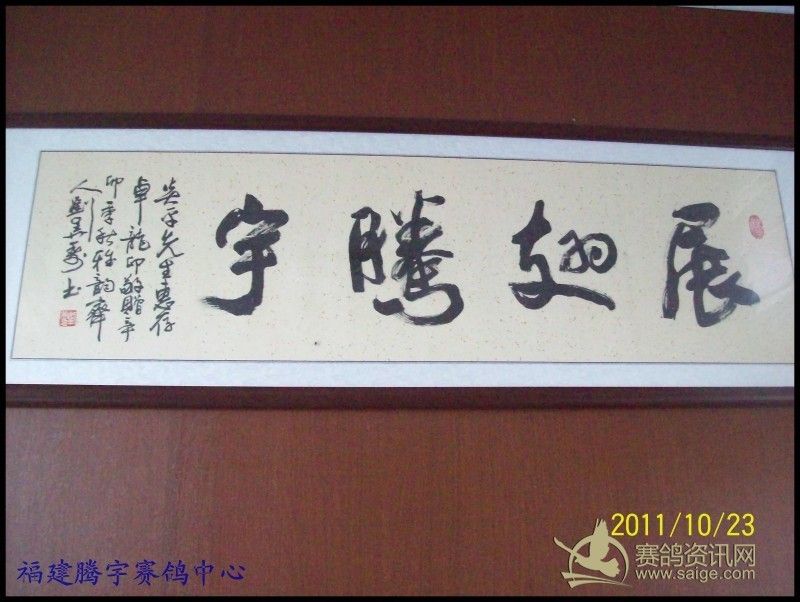 展翅腾宇
炎平先生惠存
卓龙印敬赠辛
卯季秋雅韵斋
人刘
书
2011/10/23
福建腾宇赛鸽中心
赛鸽资讯网
www.saige.com